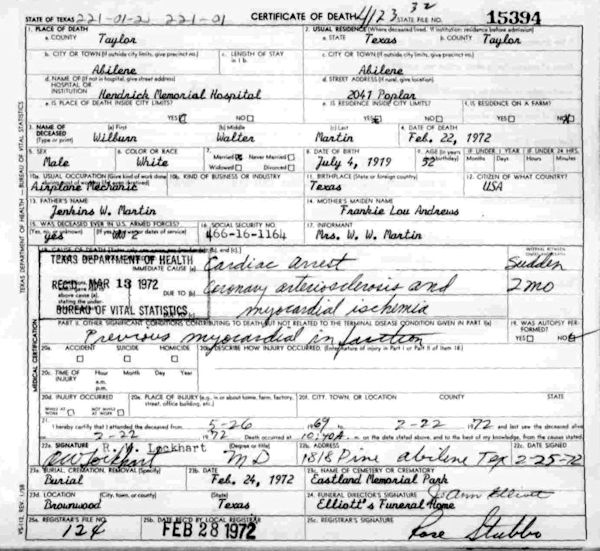 STATE OF TEXAS 221-01-2 221-01 CERTIFICATE OF DEATH 4123 32 STATE FILE NO. 15394
1. PLACE OF DEATH
a. COUNTY Taylor
2. USUAL RESIDENCE (Where deceased lived. If institution: residence before admission)
a. STATE Texas b. COUNTY Taylor
b. CITY OR TOWN (If outside city limits, give precinct no.) Abilene
c. LENGTH OF STAY in 1 b.
c. CITY OR TOWN (If outside city limits, give precinct no.) Abilene
d. NAME OF (If not in hospital, give street address) HOSPITAL OR INSTITUTION Hendrick Memorial Hospital
d. STREET ADDRESS (If rural, give location) 2041 Poplar
e. IS PLACE OF DEATH INSIDE CITY LIMITS? YES NO
e. IS RESIDENCE INSIDE CITY LIMITS? YES NO
f. IS RESIDENCE ON A FARM? YES NO
3. NAME OF DECEASED (Type or print)
(a) First Wilburn
(b) Middle Walter
(c) Last Martin
4. DATE OF DEATH Feb. 22, 1972
5. SEX Male
6. COLOR OR RACE White
7. Married Never Married
Widowed Divorced
8. DATE OF BIRTH July 4, 1919
9. AGE (In years last birthday) 52
IF UNDER 1 YEAR Months Days
IF UNDER 24 HRS. Hours Min.
10a. USUAL OCCUPATION (Give kind of work done Airplane Mechanic
10b. KIND OF BUSINESS OR INDUSTRY
11. BIRTHPLACE (State or foreign country) Texas
12. CITIZEN OF WHAT COUNTRY? USA
13. FATHER'S NAME Jenkins W. Martin
14. MOTHER'S MAIDEN NAME Frankie Lou Andrews
15. WAS DECEASED EVER IN U.S. ARMED FORCES?
(Yes, no, or unknown) yes (If yes, give war or dates of service) 2
16. SOCIAL SECURITY NO. 466-16-1164
17. INFORMANT Mrs. W. W. Martin
18. CAUSE OF DEATH
TEXAS DEPARTMENT OF HEALTH
IMMEDIATE CAUSE (a) Cardiac Arrest Sudden
REC'D. MAR 13 1972
above cause (a), stating the under- DUE TO (b) Coronary arteriosclerosis and 2 mo
BUREAU OF VITAL STATISTICS
myocardial ischemia
PART II. OTHER SIGNIFICANT CONDITIONS CONTRIBUTING TO DEATH BUT NOT RELATED TO THE TERMINAL DISEASE CONDITION GIVEN IN PART I(a)
Previous myocardial infarction
19. WAS AUTOPSY PERFORMED? YES NO
20a. ACCIDENT SUICIDE HOMICIDE
20b. DESCRIBE HOW INJURY OCCURRED. (Enter nature of injury in Part I or Part II of Item 18.)
20c. TIME OF INJURY Hour a.m. p.m. Month Day Year
20d. INJURY OCCURRED WHILE AT WORK NOT WHILE AT WORK
20e. PLACE OF INJURY (e.g., in or about home, farm, factory, street, office building, etc.)
20f. CITY, TOWN, OR LOCATION COUNTY STATE
21. I hereby certify that I attended the deceased from 5-26 1969 to 2-22 1972 and last saw the deceased alive
2-22 1972 Death occurred at 10:40 A. m. on the date stated above, and to the best of my knowledge, from the causes stated.
22a. SIGNATURE R. W. Lockhart (Degree or title) MD
RW Lockhart
22b. ADDRESS 1818 Pine Abilene Tex
22c. DATE SIGNED 2-25-72
23a. BURIAL, CREMATION, REMOVAL (Specify) Burial
23b. DATE Feb. 24, 1972
23c. NAME OF CEMETERY OR CREMATORY Eastland Memorial Park
23d. LOCATION (City, town, or county) (State) Brownwood Texas
24. FUNERAL DIRECTOR'S SIGNATURE JoAnn Elliott
Elliott's Funeral Home
25a. REGISTRAR'S FILE NO. 124
25b. DATE REC'D BY LOCAL REGISTRAR FEB 28 1972
25c. REGISTRAR'S SIGNATURE Rose Stubbs
TEXAS DEPARTMENT OF HEALTH — BUREAU OF VITAL STATISTICS
MEDICAL CERTIFICATION
VS-112, REV. 1/58